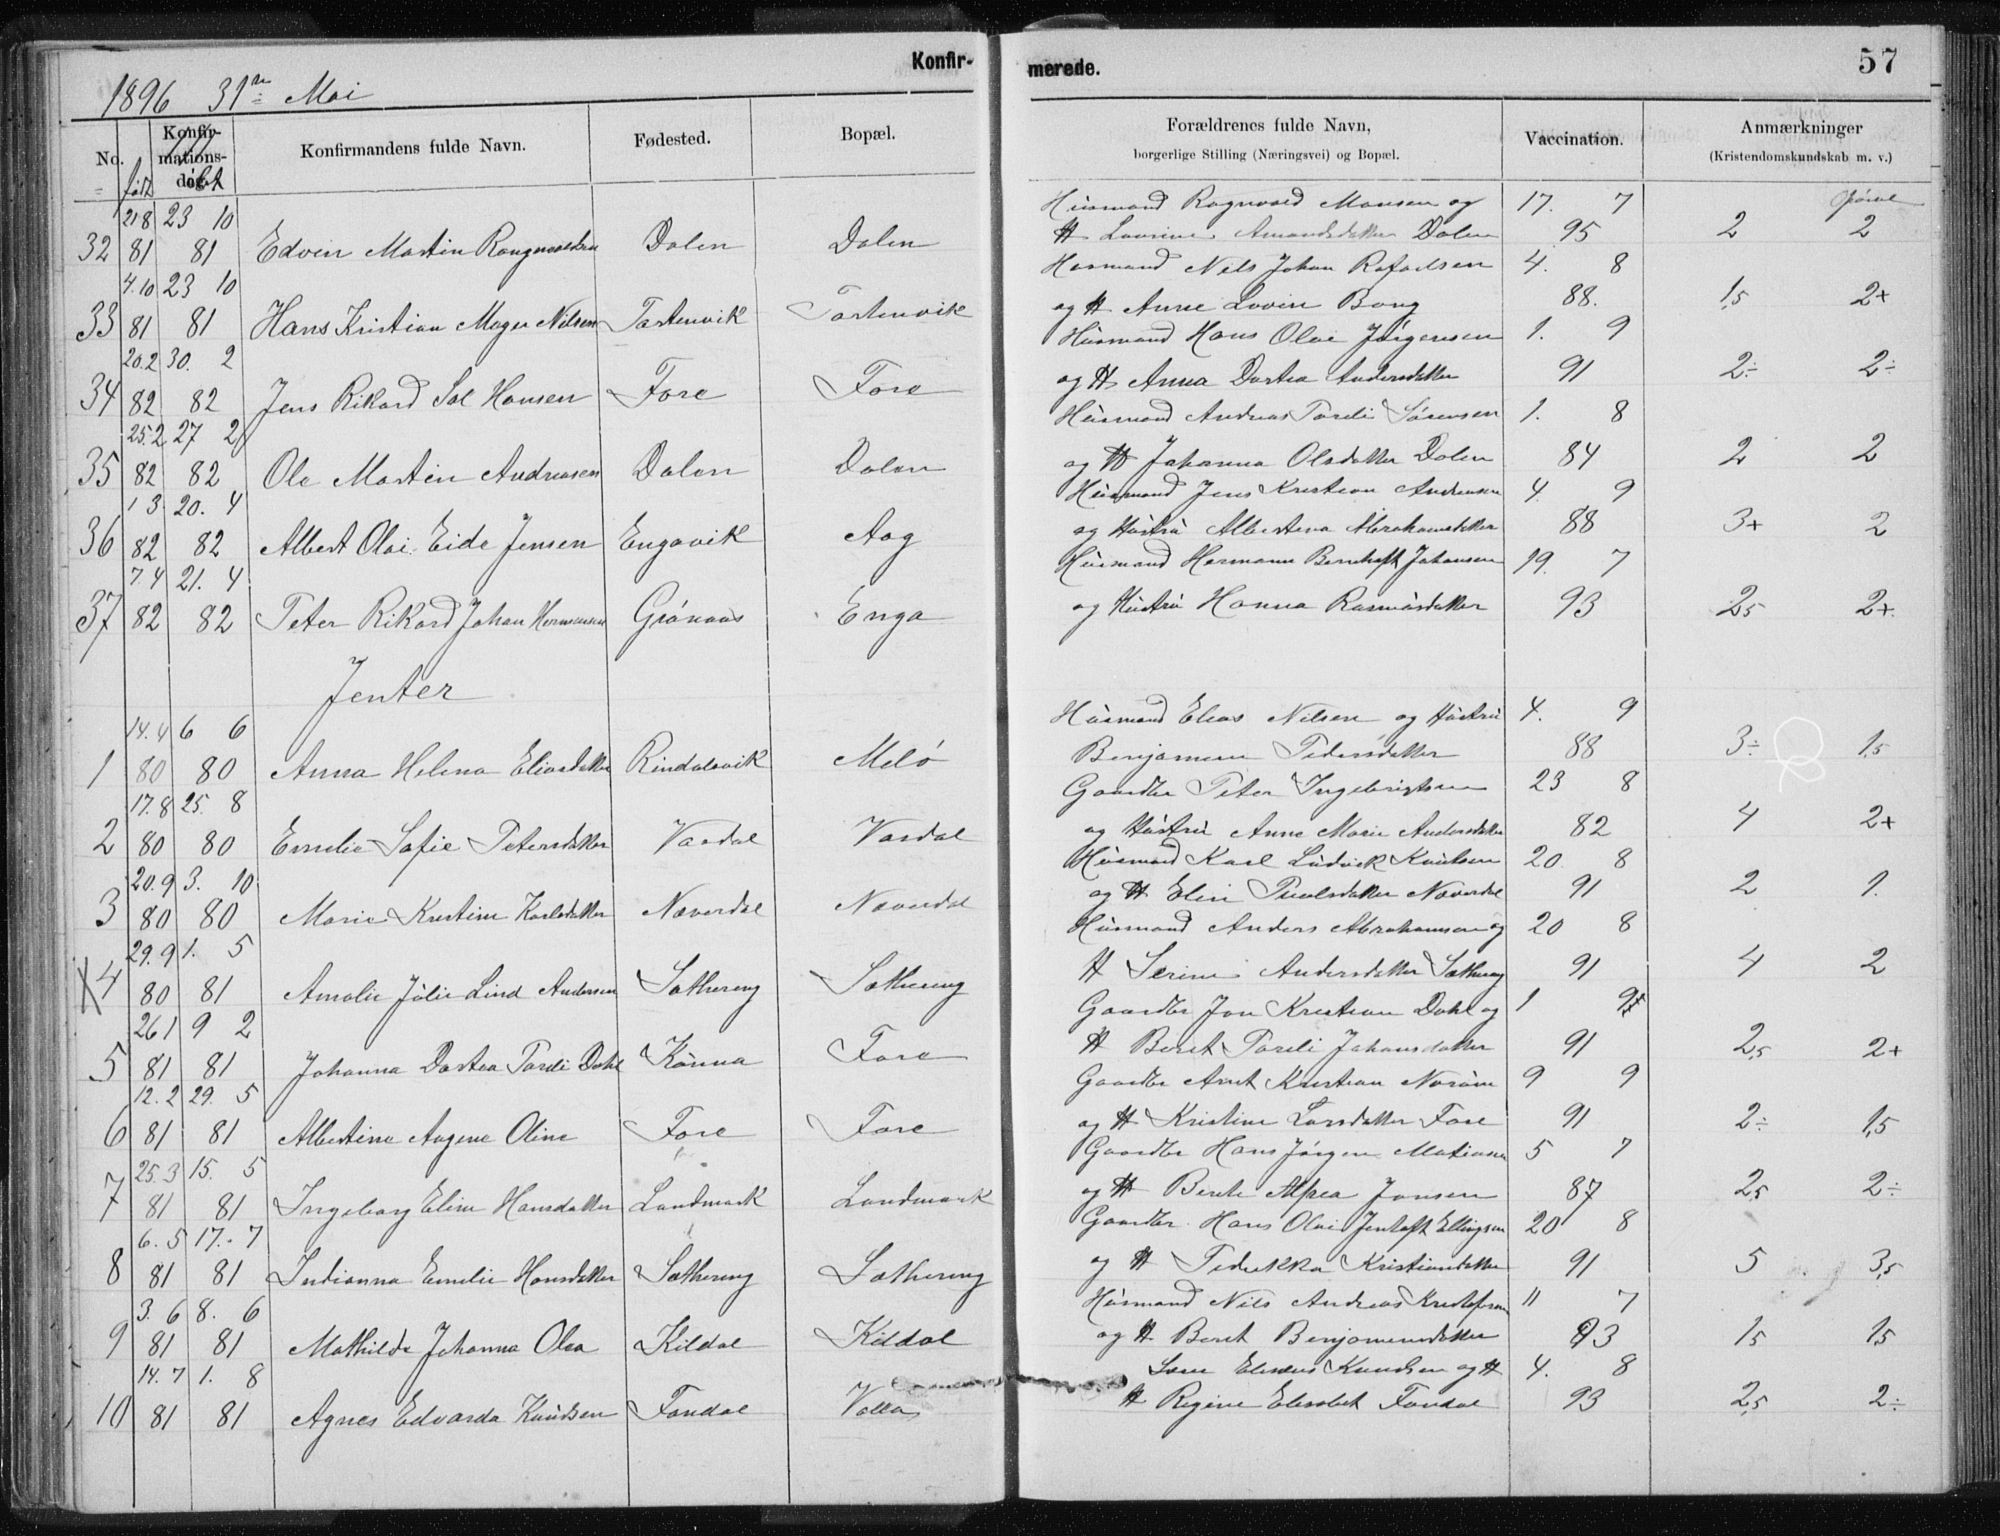 Konfirmerede. 57
1896 31te Mai
No. født Konfirmationsdag. døbt Konfirmandens fulde Navn. Fødested. Bopæl. Forældrenes fulde Navn, borgerlige Stilling (Næringsvei) og Bopæl. Vaccination. Anmærkninger (Kristendomskundskab m. v.)
21 8 23 10 Husmand Ragnvald Monsen og 17. 7
32 81 81 Edvin Martin Rangnvaldsen Dalen Dalen H Lovrine Amandsdatter Dalen 95 2 2
4.10 23 10 Husmand Nils Johan Rafaelsen 4. 8
33 81 81 Hans Kristian Mager Nilsen Tostenvik Tostenvik og H Anne Lovin Bang 88. 1,5 2+
20.2 30. 2 Husmand Hans Olai Jørgensen 1. 9
34 82 82 Jens Rikard Sol Hansen Fore Fore og H Anna Dortea Andersdatter 91 2÷ 2÷
25.2 27 2 Husmand Andreas Pareli Sørensen 1. 8
35 82 82 Ole Martin Andreasen Dalen Dalen og H Johanna Olsdatter Dalen 84 2 2
1 3. 20. 4 Husmand Jens Kristian Andreasen 4. 9
36 82 82 Albert Olai Eide Jensen Engavik Aag og Hustru Albertina Abrahamsdatter 88 3+ 2
7 4 21. 4 Husmand Hermann Bernhoft Johansen 19. 7
37 82 82 Peter Rikard Johan Hermansen Grønaas Enga og Hustru Hanna Rasmusdatter 93 2,5 2+.
Jenter
14.4 6 6 Husmand Elias Nilsen og Hustru 4. 9
1 80 80 Anna Helena Eliasdatter Rindalsvik Melø Benjamine Pedersdatter 88 3÷ 1,5
17.8 25. 8 Gaardbr Peter Ingebrigtsen 23 8
2 80 80 Emelie Sofie Petersdatter Vasdal Vasdal og Hustru Anne Marie Andersdatter 82 4 2+
20.9 3. 10 Husmand Karl Ludvik Knutsen 20. 8
3 80 80 Marie Kristine Karlsdatter Næverdal Næverdal og H Elen Paulsdatter Næverdal 91 2 1.
29.9 1. 5 Husmand Anders Abrahamsen og 20 8
X4 80 81 Amalie Julie Lind Andersen Sæthereng Sæthereng H Serine Andersdatter Sæthereng 91 4 2
26 1 9 2 Gaardbr Jon Kristian Dahl og 1 9
5 81 81 Johanna Dortea Pareli Dahl Kønna Fore H Beret Pareli Johansdatter 91 2,5 2+
12.2 29. 5 Gaardbr Arnt Kristian Norum 9 9
6 81 81 Albertine Augene Oline Fore Fore og H Kristine Larsdatter Fore 91 2÷ 1,5
25.3 15. 5 Gaardbr Hans Jørgen Matiasen 5 7
7 81 81 Ingeborg Eline Hansdatter Landmark Landmark og H Berete Alfea Jonsen 87 2,5 2÷
6. 5 17. 7 Gaardbr. Hans Olai Jentoft Ellingsen 20 8
8 81 81 Indianna Emelie Hansdatter Sæthereng Sæthereng og H Fredrikka Kristiansdatter 91 5 3,5
3. 6 8. 6 Husmand Nils Andreas Kristofersen 11 7
9 81 81 Mathilde Johanna Olea Kildal Kildal og H Beret Benjaminsdatter 93 1,5 1,5
14.7 1. 8 Knudsen og H 4. 8
10 81 81 Agnes Edvarda Knudsen Fondal Valla H Regine Elisabet Fondal 93 2,5 2÷